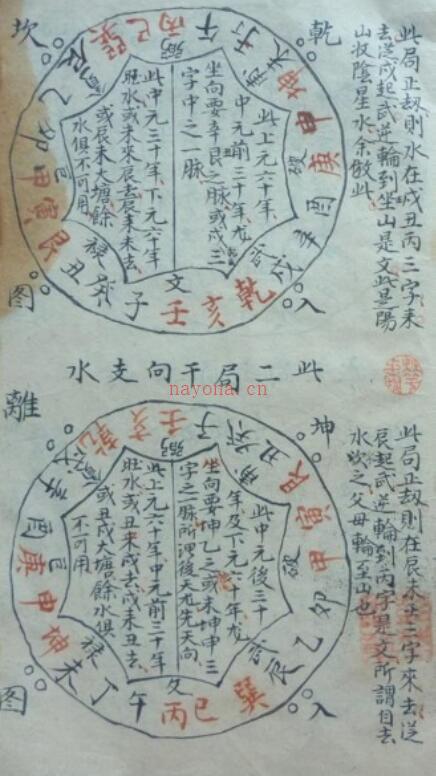 此局正刼則水在戌丑丙三字来
去從戌起武逆輪到坐山是文此是陽
山收陰星水余倣此
乾
坎
入
图
午
丁
未
坤
申
庚
酉
辛
戌
乾
亥
壬
子
癸
丑
艮
寅
甲
卯
乙
辰
巽
巳
丙
弼
武
文
祿
此上元六十年
中元前三十年龙
坐向要辛艮之脉或戌三
字中之一脉
此中元三十年下元六十年
旺水或未来辰去辰来未去
或辰未大塘餘
水俱不可用
此二局干向支水
nayona.cn
此局正刼則在辰未二字來去逆
辰起武逆輪到丙字是文所謂自去
水坎之父母輪至山也
坤
離
入
图
子
癸
丑
艮
寅
甲
卯
乙
辰
巽
巳
丙
午
丁
未
坤
申
庚
酉
辛
乾
亥
壬
弼
文
祿
此中元後三十
年及下元六十年龙
坐向要坤乙之或未坤申三
字之一脉所谓後天龙先天向
此上元六十年中元前三十年
旺水或丑来戌去戌来丑去
或丑戌大塘餘水俱
不可用